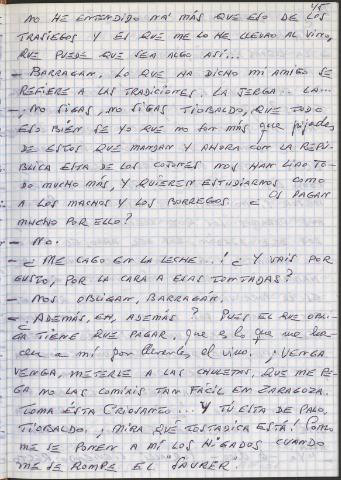 45
NO HE ENTENDIDO NA' MÁS QUE ESO DE LOS
TRASIEGOS Y ES QUE ME LO HE LLEVAO AL VINO,
QUE PUEDE QUE SEA ALGO ASÍ...
- BARRAGAN. LO QUE HA DICHO MI AMIGO SE
REFIERE A LAS TRADICIONES. LA JERGA.. LA...
- ¡NO SIGAS, NO SIGAS TIOBALDO, QUE TODO
ESO BIEN SE YO QUE NO SON MÁS que pijadas
DE ESTOS QUE MANDAN Y AHORA CON LA REPU-
BLICA ESTA DE LOS COJONES NOS HAN LIAO TO-
DO MUCHO MÁS, Y QUIEREN ESTUDIARNOS COMO
A LOS MACHOS Y LOS BORREGOS. ¿OS PAGAN
MUCHO POR ELLO?
- NO.
- ¿ME CAGO EN LA LECHE...! ¿Y VAIS POR
GUSTO, POR LA CARA A ESAS TONTADAS?
- NOS OBLIGAN, BARRAGÁN.
- ¿ADEMÁS, EH, ADEMÁS? PUES EL QUE OBLI-
GA TIENE QUE PAGAR, que es lo que me ha-
cen a mí por llevarles el vino. ¡VENGA
VENGA, METERLE A LAS CHULETAS, QUE ME PE-
GA NO LAS COMÍAIS TAN FÁCIL EN ZARAGOZA.
TOMA ÉSTA CRISANTO... Y TÚ ESTA DE PALO,
TIOBALDO. ¡MIRA QUÉ TOSTADICA ESTÁ! COMO
ME SE PONEN A MÍ LOS HÍGADOS CUANDO
ME SE ROMPE EL "SAURER".